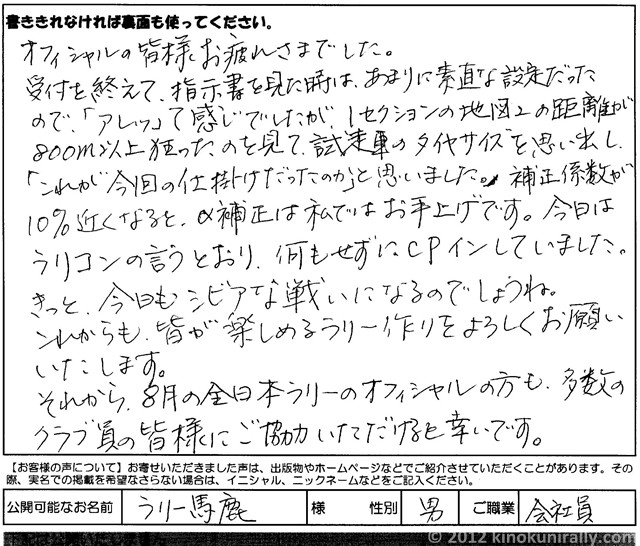 書ききれなければ裏面も使ってください。
オフィシャルの皆様、お疲れさまでした。
受付を終えて、指示書を見た時は、あまりに素直な設定だった
ので、「アレッ」て感じでしたが、1セクションの地図上の距離が
800m以上狂ったのを見て、試走車のタイヤサイズを思い出し、
「これが今回の仕掛けだったのか」と思いました。補正係数が
10%近くなると、α補正は私ではお手上げです。今日は
ラリコンの言うとおり、何もせずにCPインしていました。
きっと、今日もシビアな戦いになるのでしょうね。
これからも、皆が楽しめるラリー作りをよろしくお願い
いたします。
それから、8月の全日本ラリーのオフィシャルの方も、多数の
クラブ員の皆様にご協力いただけると幸いです。
【お客様の声について】お寄せいただきました声は、出版物やホームページなどでご紹介させていただくことがあります。その
際、実名での掲載を希望なさらない場合は、イニシャル、ニックネームなどをご記入ください。
公開可能なお名前 ラリー馬鹿 様 性別 男 ご職業 会社員
© 2012 kinokunirally.com